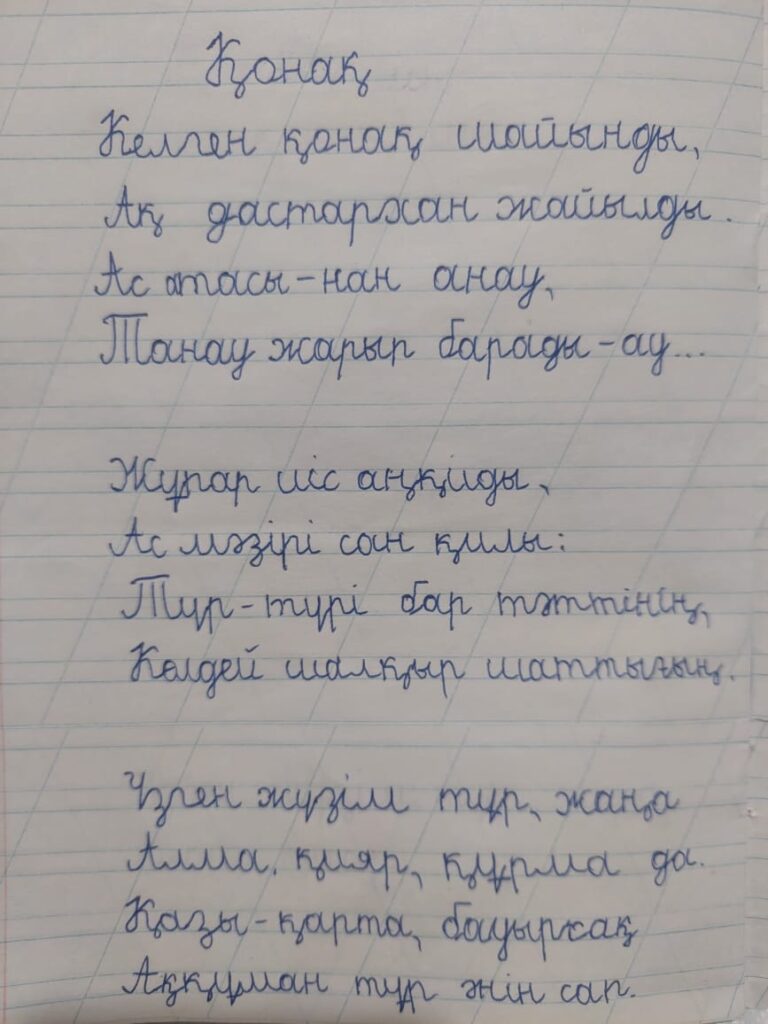 Қонақ
Келген қонақ шайынды,
Ақ дастархан жайылды.
Ас атасы-нан анау,
Танау жарып барады-ау...
Жұпар исс аңқиды,
Ас мәзірі сан қилы:
Түр-түрі бар тәттінің,
Көлдей шалқыр шаттығың.
Үзген жүзім тұр, жаңа
Алма, қияр, құрма да.
Қазы-қарта, бауырсақ
Аққұман тұр әнін сап.